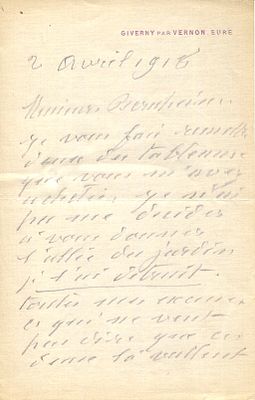 GIVERNY PAR VERNON. EURE
2 Avril 1918
Monsieur Bernheim,
je vous fais remettre
deux des tableaux
que vous m'avez
achetés, je n'ai
pu me décider
à vous donner
l'allée du jardin
je l'ai détruit.
toutes mes excuses
ce qui ne veut
pas dire que ces
deux là vallent